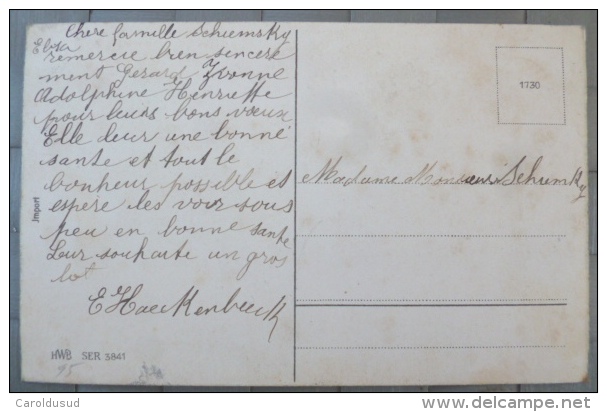 Chere famille Schiemsky
Elza
remercie bien sincere
ment Gerard Yvonne
Adolphine Henriette
pour leurs bons voeux
Elle leur une bonne
sante et tout le
bonheur possible et
espere les voir sous
peu en bonne sante
Leur souhaite un gros
lot
E Haeckenbeeck
Import
HWB SER 3841
95
1730
Madame Monsieur Schiemsky
© Caradosud
www.delcampe.net